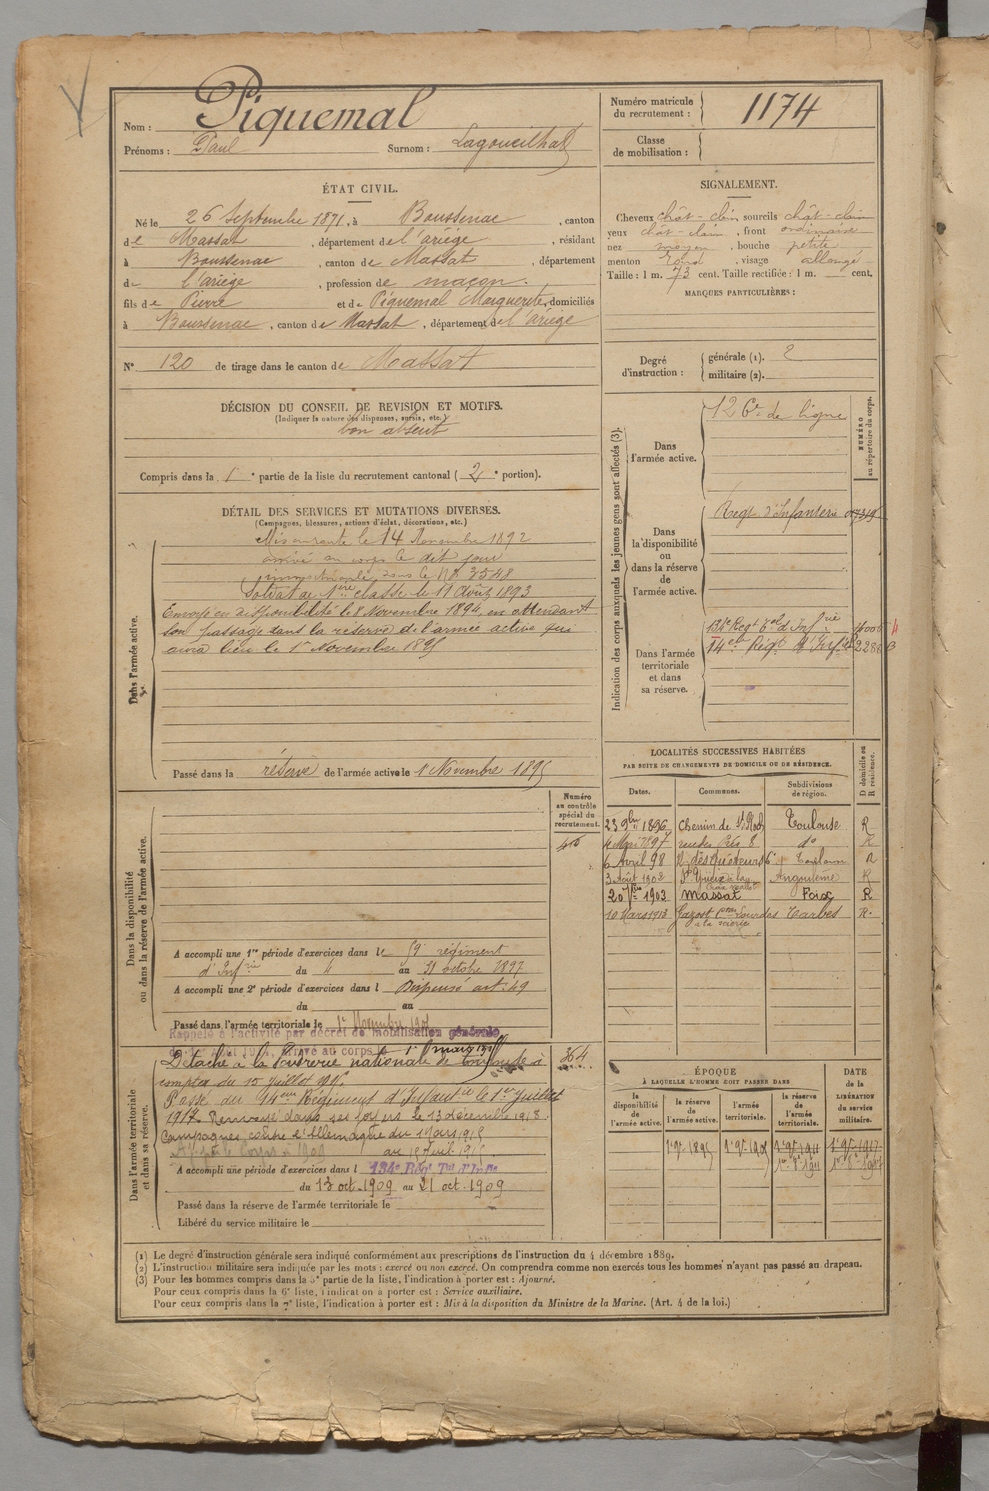 Nom : Piquemal
Prénoms : Paul Surnom : Lagoueilhat
Numéro matricule du recrutement : 1174
Classe de mobilisation :
ÉTAT CIVIL.
Né le 26 Septembre 1871, à Boussenac, canton
de Massat, département de l'ariège, résidant
à Boussenac, canton de Massat, département
de l'ariège, profession de maçon.
fils de Pierre et de Piquemal Marguerite, domiciliés
à Boussenac, canton de Massat, département de l'ariège
N° 120 de tirage dans le canton de Massat
SIGNALEMENT.
Cheveux chât-clair, sourcils chât-clain
yeux chât-clain, front ordinaire
nez moyen, bouche petite
menton rond, visage allongé
Taille : 1 m. 73 cent. Taille rectifiée : 1 m. cent.
MARQUES PARTICULIÈRES :
Degré d'instruction : générale (1). 2
militaire (2).
DÉCISION DU CONSEIL DE REVISION ET MOTIFS.
(Indiquer la nature des dispenses, sursis, etc.)
bon absent
Compris dans la 1e partie de la liste du recrutement cantonal (2e portion).
DÉTAIL DES SERVICES ET MUTATIONS DIVERSES.
(Campagnes, blessures, actions d'éclat, décorations, etc.)
Dans l'armée active.
Mis en route le 14 Novembre 1892
arrivé au corps le dit jour
immatriculé sous le N° 3548
Soldat de 1ère classe le 11 Août 1893
Envoyé en disponibilité le 8 Novembre 1894, en attendant
son passage dans la réserve de l'armée active qui
aura lieu le 1er Novembre 1895
Passé dans la réserve de l'armée active le 1 Novembre 1895
Indication des corps auxquels les jeunes gens sont affectés (3).
NUMÉRO au répertoire du corps.
Dans l'armée active. 126e de ligne
Dans la disponibilité ou dans la réserve de l'armée active. Regt d'Infanterie
Dans l'armée territoriale et dans sa réserve.
134e Regt Tal d'Infrie
14e Régt d'Infie
LOCALITÉS SUCCESSIVES HABITÉES
PAR SUITE DE CHANGEMENTS DE DOMICILE OU DE RÉSIDENCE.
Dates. Communes. Subdivisions de région. D domicile ou R résidence.
23 9bre 1896 Chemin de St Roch Toulouse R
4 Mai 1897 8 do R
6 Avril 98 Toulouse R
3 Août 1902 Angoulême R
20 1903 Massat Foix R
10 Mars 1913 Gazost Lourdes Tarbes R.
à la scierie
Dans la disponibilité ou dans la réserve de l'armée active.
Numéro au contrôle spécial du recrutement.
A accompli une 1re période d'exercices dans le régiment
d'Infrie du 4 au 31 octobre 1897
A accompli une 2e période d'exercices dans l Dispensé art. 49
du au
Passé dans l'armée territoriale le 1er Novembre
Rappelé à l'activité par décret de mobilisation générale
arrivé au corps le 1er mars
Dans l'armée territoriale et dans sa réserve.
Détaché à la Poudrerie nationale de Toulouse à 364
compter du 15 juillet
Passé au 14ème Régiment d'Infanterie le 1er juillet
1917. Renvoyé dans ses foyers le 13 décembre 1918.
Campagnes contre l'Allemagne du 1 Mars 1915
au
A accompli une période d'exercices dans l 134e Régt Tal d'Infie
du 13 oct. 1909 au 21 oct. 1909
Passé dans la réserve de l'armée territoriale le
Libéré du service militaire le
ÉPOQUE
À LAQUELLE L'HOMME DOIT PASSER DANS
DATE de la LIBÉRATION du service militaire.
la disponibilité de l'armée active. la réserve de l'armée active. l'armée territoriale. la réserve de l'armée territoriale.
1er 9bre 1895 1er 9bre 1905 1er 9bre 1911 1er 9bre 1917
(1) Le degré d'instruction générale sera indiqué conformément aux prescriptions de l'instruction du 4 décembre 1889.
(2) L'instruction militaire sera indiquée par les mots : exercé ou non exercé. On comprendra comme non exercés tous les hommes n'ayant pas passé au drapeau.
(3) Pour les hommes compris dans la 5e partie de la liste, l'indication à porter est : Ajourné.
Pour ceux compris dans la 6e liste, l'indication à porter est : Service auxiliaire.
Pour ceux compris dans la 7e liste, l'indication à porter est : Mis à la disposition du Ministre de la Marine. (Art. 4 de la loi.)